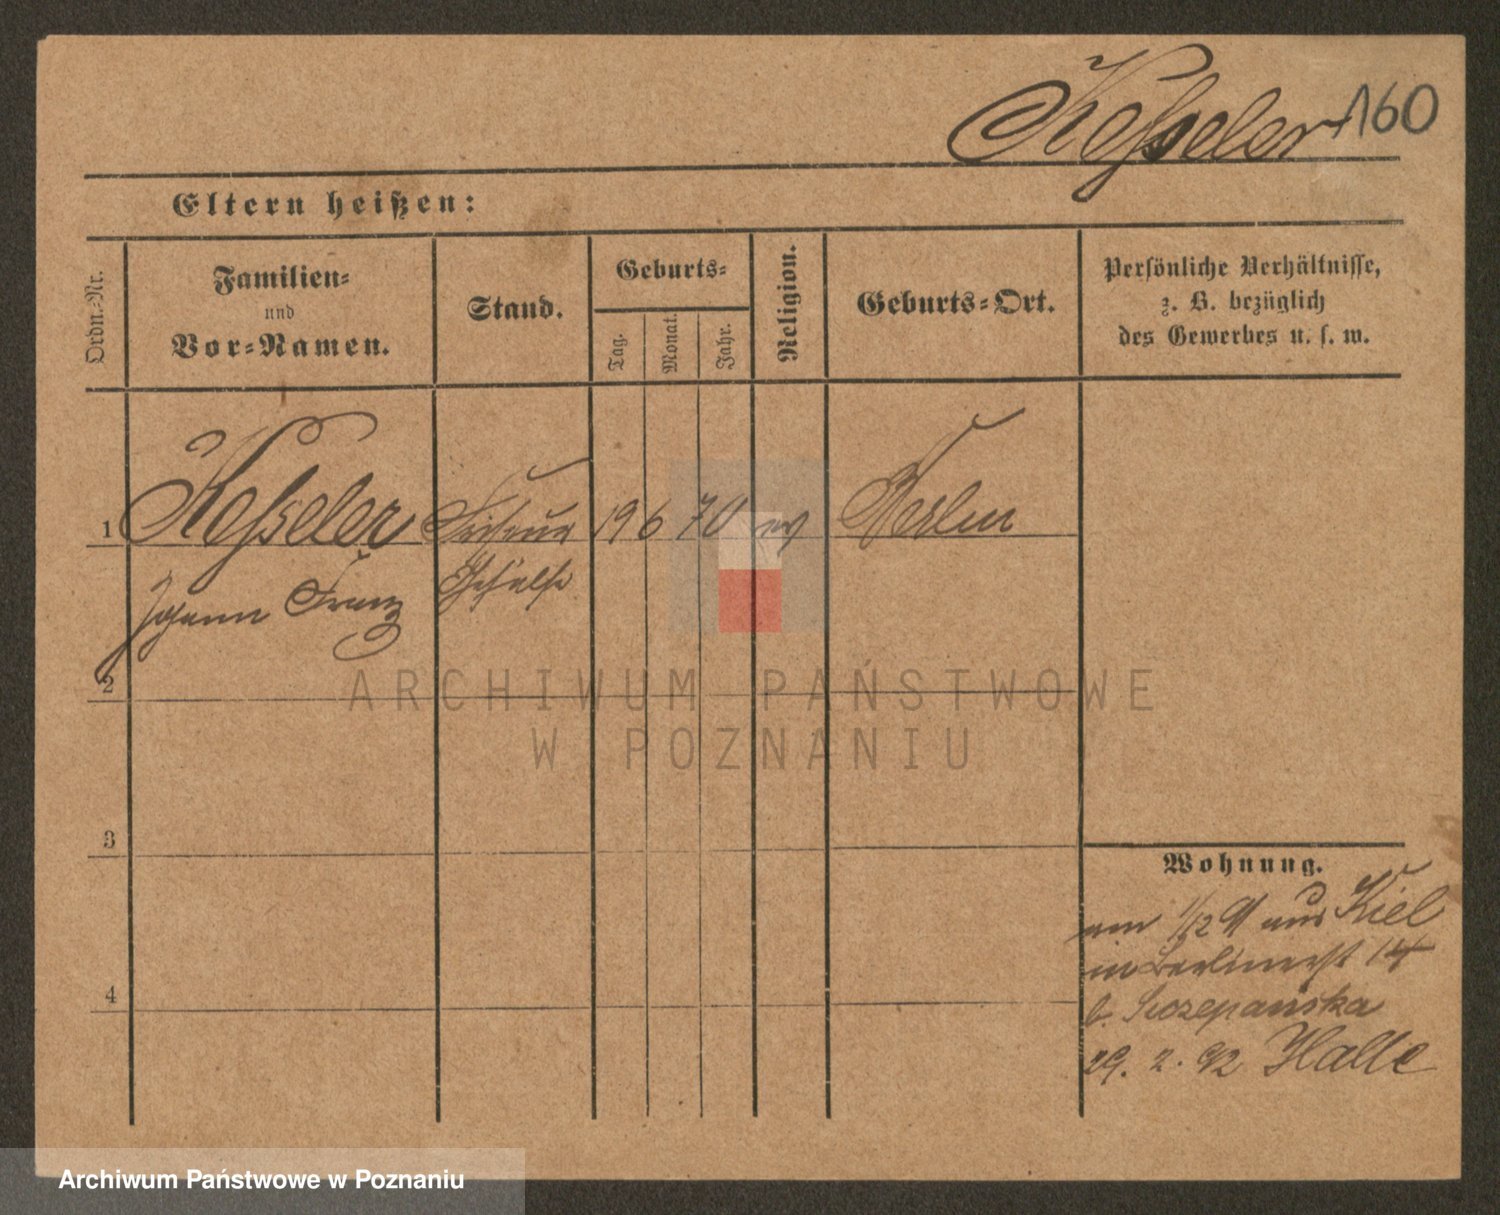 Kesseler 160
Eltern heißen:
Ordn.-Nr.
Familien-
und
Vor-Namen.
Stand.
Geburts-
Tag.
Monat.
Jahr.
Religion.
Geburts-Ort.
Persönliche Verhältnisse,
z. B. bezüglich
des Gewerbes u. s. w.
1 Kesseler Friseur 19 6 70 ev Berlin
Johann Franz Gehülfe
2
ARCHIWUM PAŃSTWOWE
W POZNANIU
3
Wohnung.
am 1/12 91 aus Kiel
in Berlinerst 14
b. Szczepanska
29. 2. 92 Halle
4
Archiwum Państwowe w Poznaniu